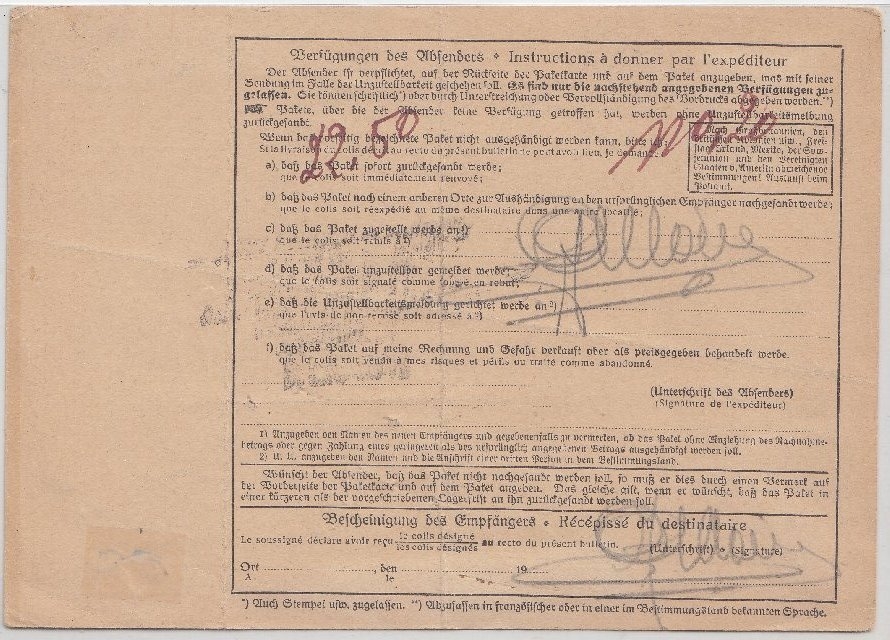 Verfügungen des Absenders • Instructions à donner par l'expéditeur
Der Absender ist verpflichtet, auf der Rückseite der Paketkarte und auf dem Paket anzugeben, was mit seiner
Sendung im Falle der Unzustellbarkeit geschehen soll. Es sind nur die nachstehend angegebenen Verfügungen zu-
gelassen. Sie können schriftlich*) oder durch Unterstreichung oder Vervollständigung des Vordrucks abgegeben werden.**)
Pakete, über die der Absender keine Verfügung getroffen hat, werden ohne Unzustellbarkeitsmeldung
zurückgesandt.
22,50
Wenn das vorseitig bezeichnete Paket nicht ausgehändigt werden kann, bitte ich:
Si la livraison du colis décrit au recto du présent bulletin ne peut avoir lieu, je demande:
a) daß das Paket sofort zurückgesandt werde;
que le colis soit immédiatement renvoyé;
und den Vereinigten
Staaten v. Amerika abweichende
Bestimmungen! Auskunft beim
Postamt.
b) daß das Paket nach einem anderen Orte zur Aushändigung an den ursprünglichen Empfänger nachgesandt werde;
que le colis soit réexpédié au même destinataire dans une autre localité;
c) daß das Paket zugestellt werde an¹)
que le colis soit remis à¹)
d) daß das Paket unzustellbar gemeldet werde;
que le colis soit signalé comme tombé en rebut;
e) daß die Unzustellbarkeitsmeldung gerichtet werde an²)
que l'avis de non-remise soit adressé à²)
f) daß das Paket auf meine Rechnung und Gefahr verkauft oder als preisgegeben behandelt werde.
que le colis soit vendu à mes risques et périls ou traité comme abandonné.
(Unterschrift des Absenders)
(Signature de l'expéditeur)
1) Anzugeben den Namen des neuen Empfängers und gegebenenfalls zu vermerken, ob das Paket ohne Einziehung des Nachnahme-
betrags oder gegen Zahlung eines geringeren als des ursprünglich angegebenen Betrags ausgehändigt werden soll.
2) U. U. anzugeben den Namen und die Anschrift einer dritten Person in dem Bestimmungsland.
Wünscht der Absender, daß das Paket nicht nachgesandt werden soll, so muß er dies durch einen Vermerk auf
der Vorderseite der Paketkarte und auf dem Paket angeben. Das gleiche gilt, wenn er wünscht, daß das Paket in
einer kürzeren als der vorgeschriebenen Lagerfrist an ihn zurückgesandt werden soll.
Bescheinigung des Empfängers • Récépissé du destinataire
Le soussigné déclare avoir reçu le colis désigné / les colis désignés au recto du présent bulletin.
(Unterschrift) • (Signature)
Ort , den 19
A le
*) Auch Stempel usw. zugelassen. **) Abzufassen in französischer oder in einer im Bestimmungsland bekannten Sprache.